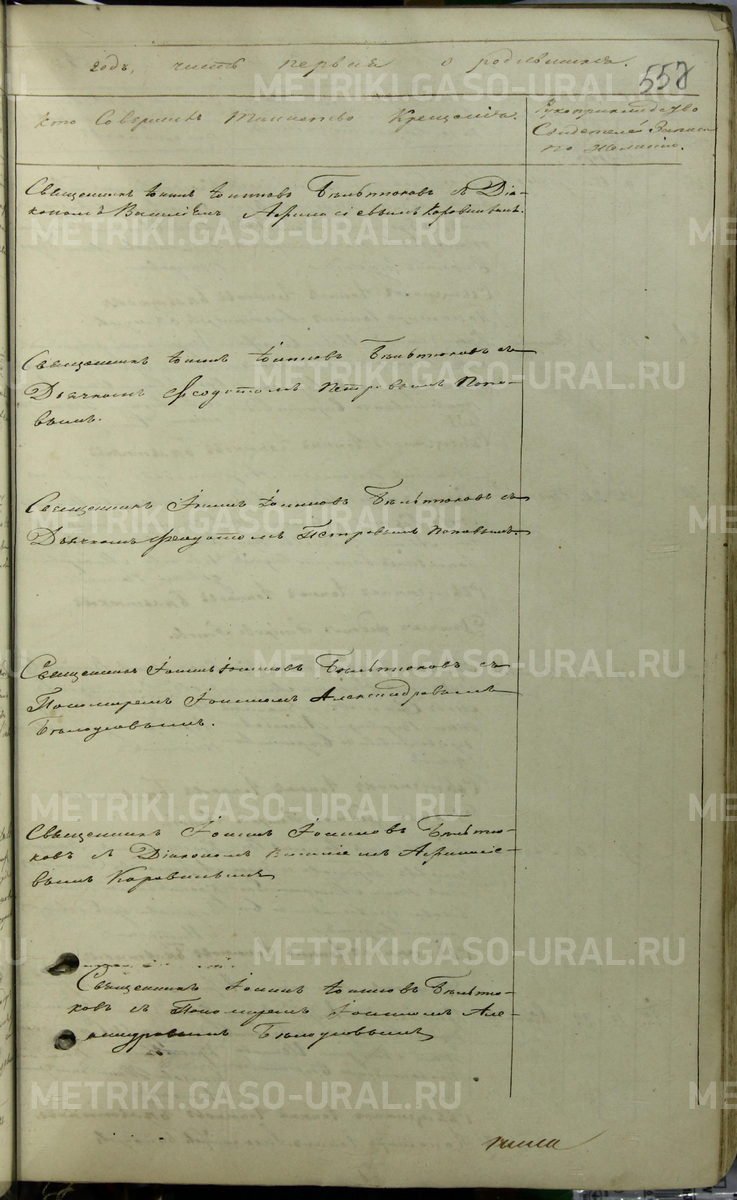 годъ, часть первая о родившихся.
557
Кто Совершалъ Таинство Крещенія.
Рукоприкладство
Свидетелей Записи
по желанію.
Священникъ Іоаннъ Іоанновъ Бѣлѣтюковъ съ Діа-
кономъ Василіемъ Афонасіевымъ Коровинымъ.
Священникъ Іоаннъ Іоанновъ Бѣлѣтюковъ съ
Дьячкомъ Феодотомъ Петровымъ Попо-
вымъ.
Священникъ Іоаннъ Іоанновъ Бѣлѣтюковъ съ
Дьячкомъ Феодотомъ Петровымъ Поповымъ.
Священникъ Іоаннъ Іоанновъ Бѣлѣтюковъ съ
Пономаремъ Іоанномъ Александровымъ
Бѣлоусовымъ.
Священникъ Іоаннъ Іоанновъ Бѣлѣтю-
ковъ съ Діакономъ Василіемъ Афонасіе-
вымъ Коровинымъ
Священникъ Іоаннъ Іоанновъ Бѣлѣтю-
ковъ съ Пономаремъ Іоанномъ Але-
ксандровымъ Бѣлоусовымъ
METRIKI.GASO-URAL.RU